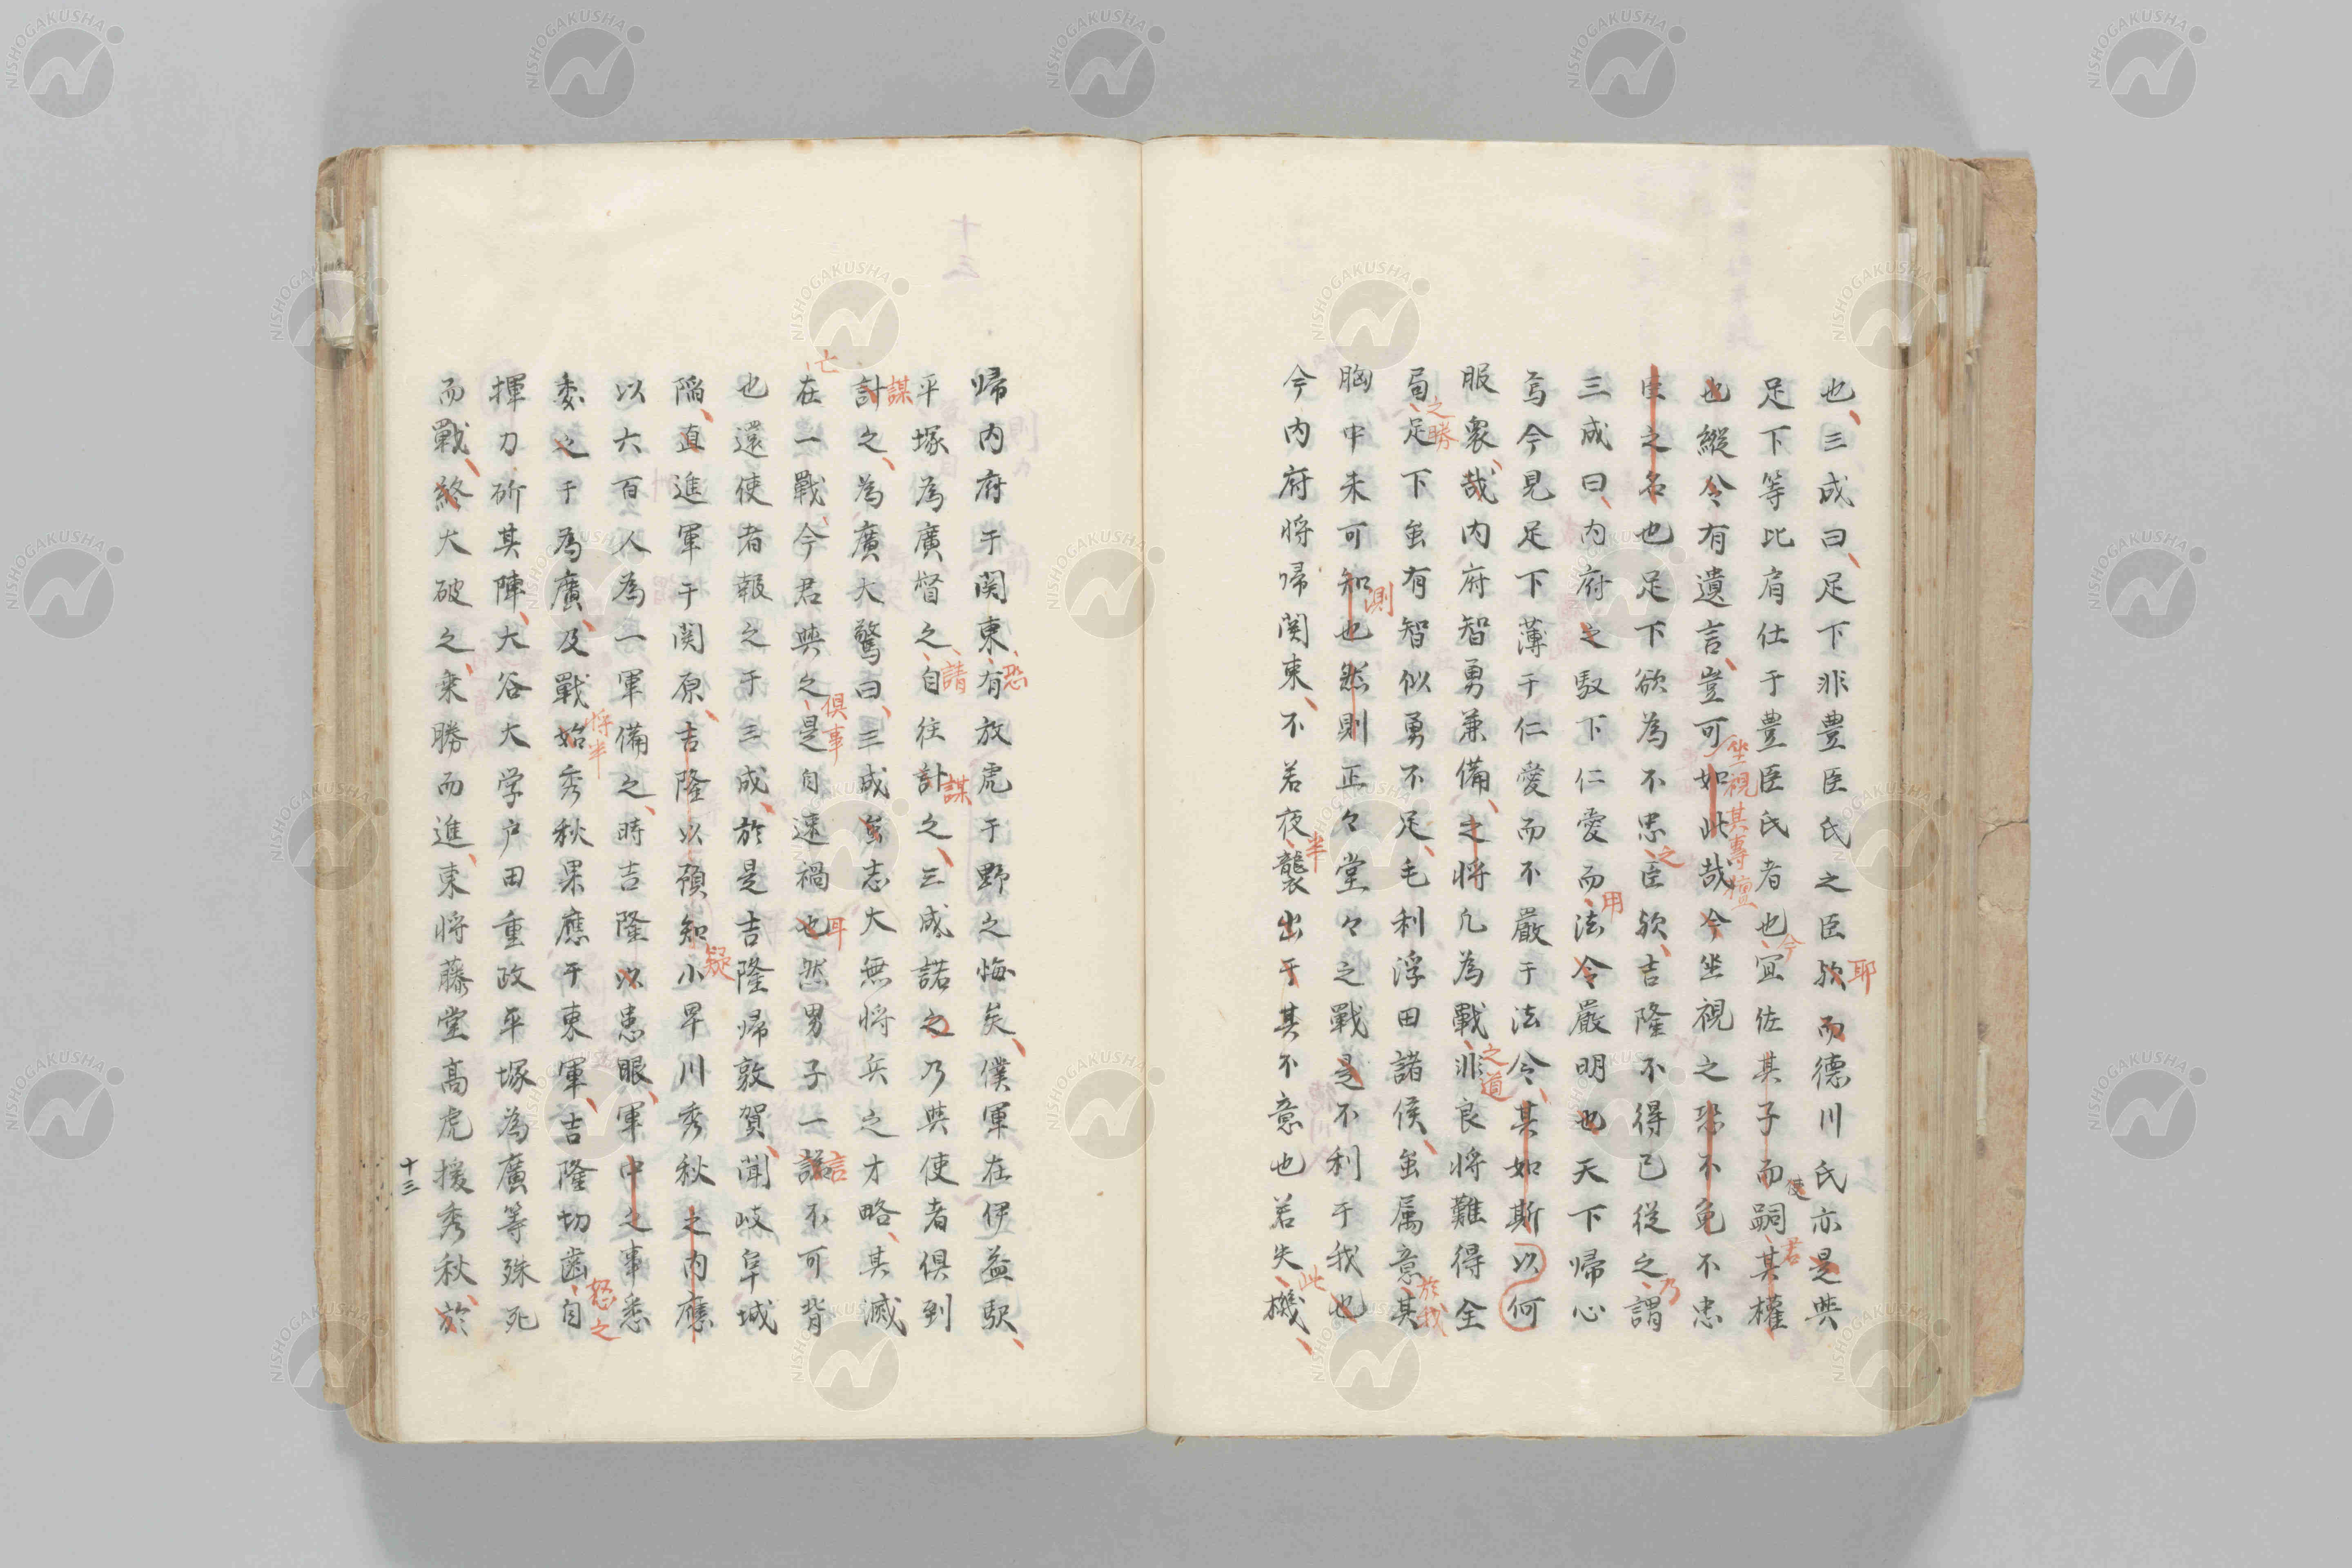 也三成曰足下非豊臣氏之臣欤而德川氏亦是與
耶
足下等比肩仕于豊臣氏者也宜佐其子而嗣其權
今
使
君
也縦令有遺言豈可如此哉今坐視之恐不免不忠
坐視其專擅
臣之名也足下欲為不忠臣欤吉隆不得已從之謂
之
乃
三成曰内府之馭下仁愛而法令嚴明也天下帰心
用
焉今見足下薄于仁愛而不嚴于法令其如斯以何
服衆哉内府智勇兼備之将凢為戰非良将難得全
之道
局足下虽有智似勇不足毛利浮田諸侯虽属意其
之勝
於我
胸中未可知也然則正々堂々之戰是不利于我也
測
今内府将帰関東不若夜襲出于其不意也若失機
半
此
帰内府于関東有放虎于野之悔矣僕軍在伊益駅
恐
平塚為廣督之自往計之三成諾之乃與使者俱到
請
謀
計之為廣大驚曰三成虽志大無将兵之才略其滅
謀
在一戰今君與之是自速禍也然男子一諾不可背
亡
俱事
耳
言
也還使者報之于三成於是吉隆帰敦賀聞岐阜城
陥直進軍于関原吉隆以預知小早川秀秋之内應
疑
以六百人為一軍備之時吉隆以患眼軍中之事悉
委之于為廣及戰始秀秋果應于東軍吉隆切齒自
将半
怒之
揮刀斫其陣大谷大学戸田重政平塚為廣等殊死
而戰終大破之乘勝而進東将藤堂高虎援秀秋於
十三
NISHOGAKUSHA